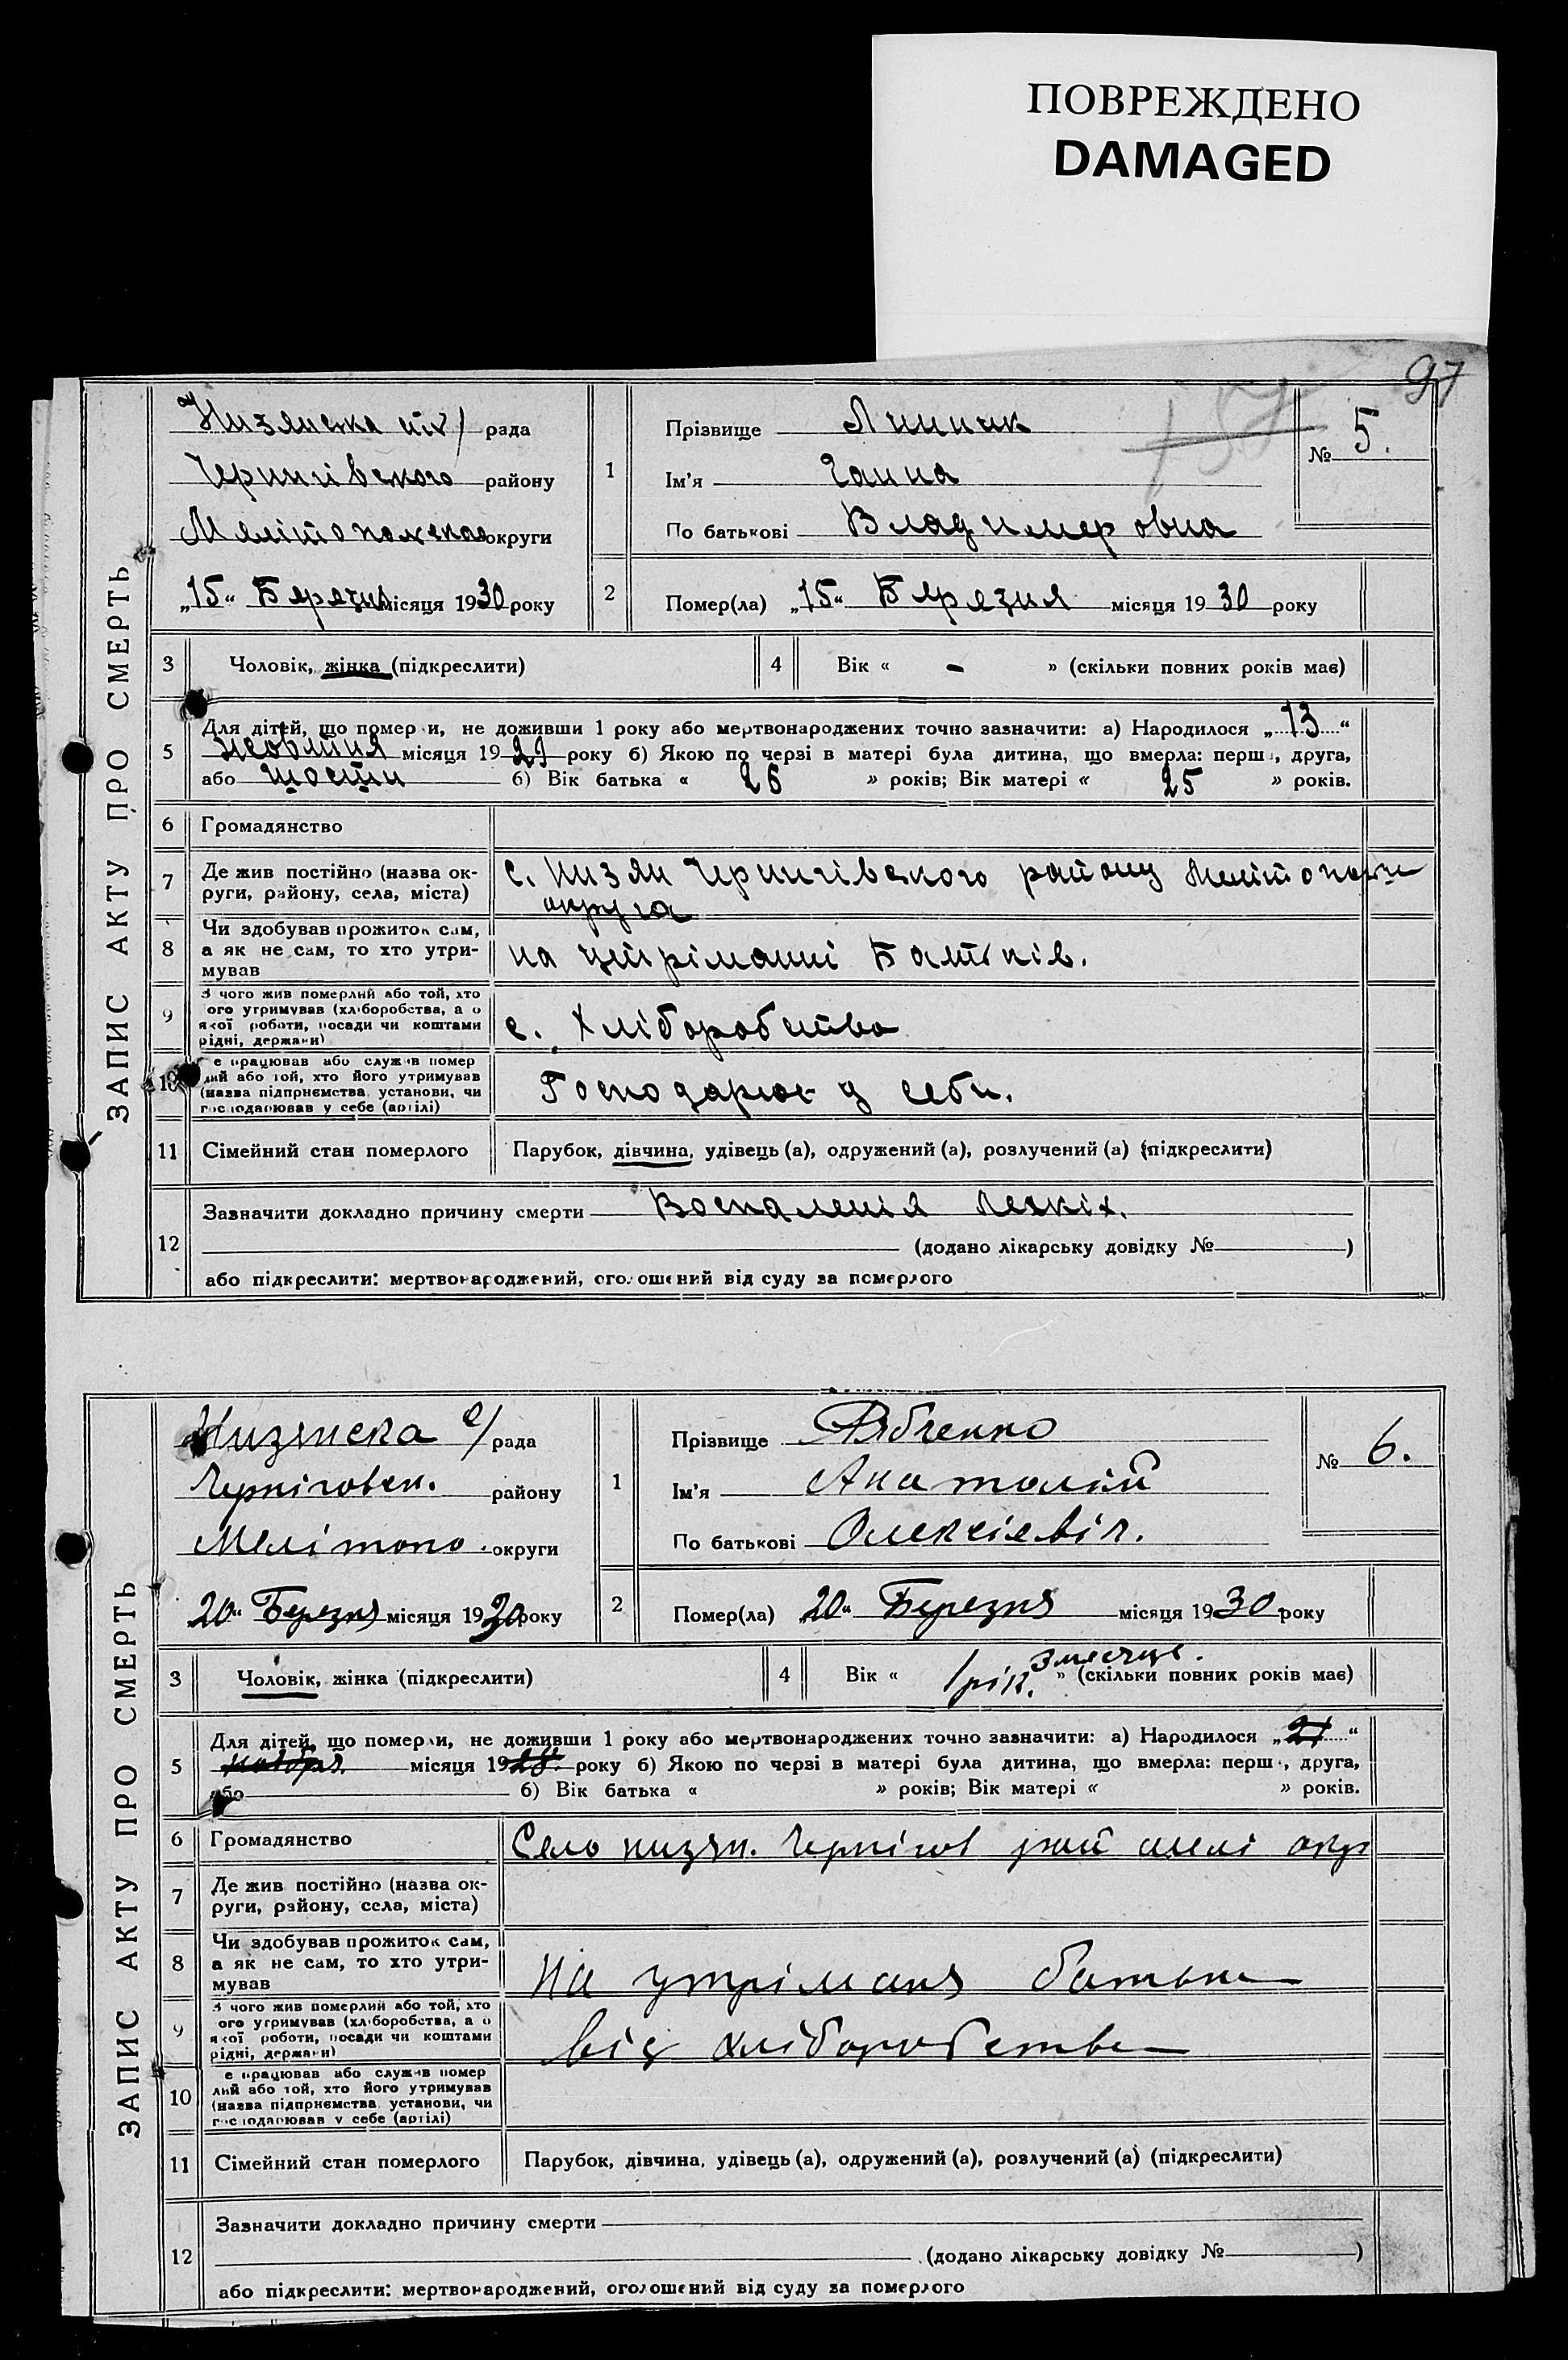 ПОВРЕЖДЕНО
DAMAGED
97
ЗАПИС АКТУ ПРО СМЕРТЬ
Низянська рада
Чернигівського району
округи
„15“ Березня місяця 1930 року
1
Прізвище
Ім'я Ганна
По батькові Владимеровна
№ 5.
2
Помер(ла) „15“ Березня місяця 1930 року
3
Чоловік, жінка (підкреслити)
4
Вік « – » (скільки повних років має)
5
Для дітей, що померли, не доживши 1 року або мертвонароджених точно зазначити: а) Народилося „13“
жовтня місяця 1929 року б) Якою по черзі в матері була дитина, що вмерла: перша, друга,
або шости б) Вік батька « 26 » років; Вік матері « 25 » років.
6
Громадянство
7
Де жив постійно (назва ок-
руги, району, села, міста)
с. Низяни Чернигівського району
округа
8
Чи здобував прожиток сам,
а як не сам, то хто утри-
мував
на утріманні Батьків.
9
З чого жив померлий або той, хто
його утримував (хліборобства, або
якої роботи, посади чи коштами
рідні, держави)
с. Хліборобства
10
Де працював або служив помер
лий або той, хто його утримував
(назва підприємства, установи, чи
господарював у себе (артілі)
Господарює у себи.
11
Сімейний стан померлого
Парубок, дівчина, удівець (а), одружений (а), розлучений (а) (підкреслити)
12
Зазначити докладно причину смерти Воспаленія Легкіх.
(додано лікарську довідку № )
або підкреслити: мертвонароджений, оголошений від суду за померлого
ЗАПИС АКТУ ПРО СМЕРТЬ
Низянска с/рада
Черніговск. району
Мелітопо. округи
20“ Березня місяця 1930 року
1
Прізвище Рябченко
Ім'я Анатолій
По батькові Олексієвіч.
№ 6.
2
Помер(ла) „20“ Березня місяця 1930 року
3
Чоловік, жінка (підкреслити)
4
Вік « 1 рік. 3 месяце. » (скільки повних років має)
5
Для дітей, що померли, не доживши 1 року або мертвонароджених точно зазначити: а) Народилося „21“
ноября. місяця 1928 року б) Якою по черзі в матері була дитина, що вмерла: перша, друга,
або б) Вік батька « » років; Вік матері « » років.
6
Громадянство
Село низян. Чернігов рай мелі окр
7
Де жив постійно (назва ок-
руги, району, села, міста)
8
Чи здобував прожиток сам,
а як не сам, то хто утри-
мував
На утріманя батьки
9
З чого жив померлий або той, хто
його утримував (хліборобства, або
якої роботи, посади чи коштами
рідні, держави)
від хліборобства
10
Де працював або служив помер
лий або той, хто його утримував
(назва підприємства, установи, чи
господарював у себе (артілі)
11
Сімейний стан померлого
Парубок, дівчина, удівець (а), одружений (а), розлучений (а) (підкреслити)
12
Зазначити докладно причину смерти
(додано лікарську довідку № )
або підкреслити: мертвонароджений, оголошений від суду за померлого